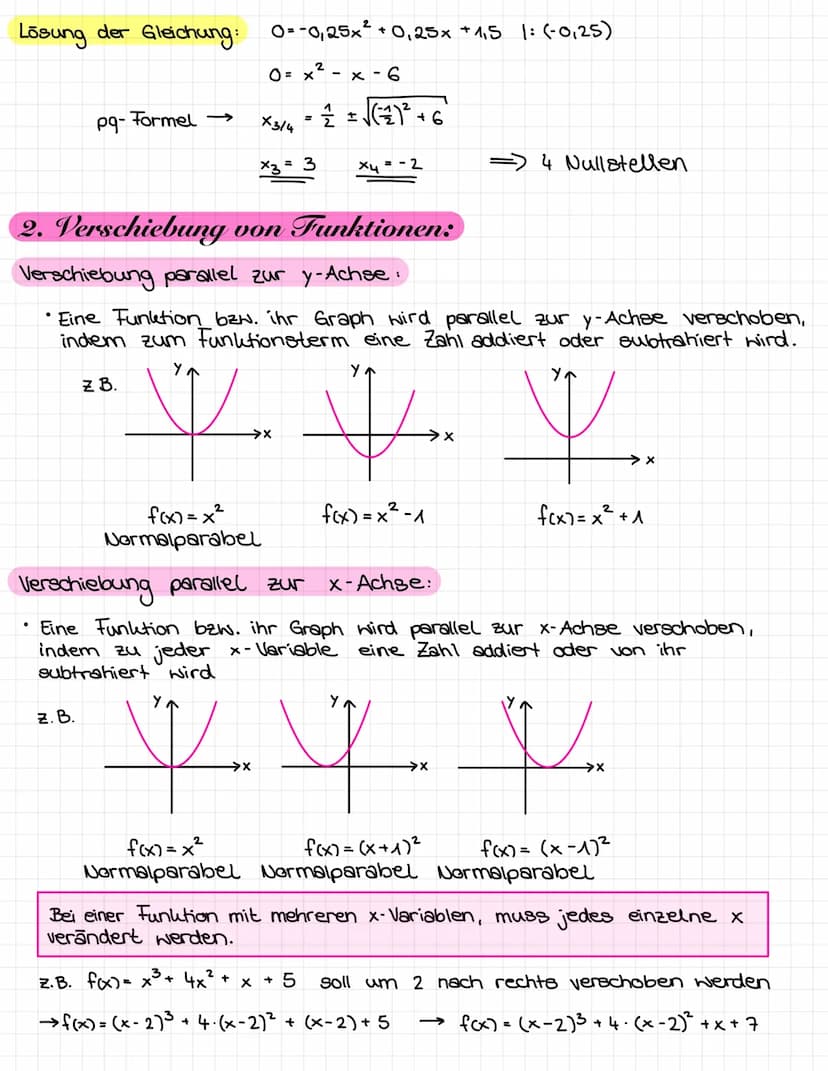 Lösung der Gleichung: 0=-0,25x² +0,25x +1,5 |: (-0,25)
0= x² - x - 6
pq-Formel → x₃/₄ = 1/2 ± √((-1/2)² + 6
x₃ = 3 x₄ = -2 ⇒ 4 Nullstellen
2. Verschiebung von Funktionen:
Verschiebung parallel zur y-Achse:
• Eine Funktion bzw. ihr Graph wird parallel zur y-Achse verschoben,
indem zum Funktionsterm eine Zahl addiert oder subtrahiert wird.
z B.
y y y
x x x
f(x) = x² f(x) = x² -1 f(x) = x² +1
Normalparabel
Verschiebung parallel zur x-Achse:
• Eine Funktion bzw. ihr Graph wird parallel zur x-Achse verschoben,
indem zu jeder x-Variable eine Zahl addiert oder von ihr
subtrahiert wird
z.B.
y y y
x x x
f(x) = x² f(x) = (x+1)² f(x) = (x-1)²
Normalparabel Normalparabel Normalparabel
Bei einer Funktion mit mehreren x-Variablen, muss jedes einzelne x
verändert werden.
z.B. f(x) = x³ + 4x² + x + 5 soll um 2 nach rechts verschoben werden
→ f(x) = (x-2)³ + 4·(x-2)² + (x-2) + 5 → f(x) = (x-2)³ + 4·(x-2)² + x + 7